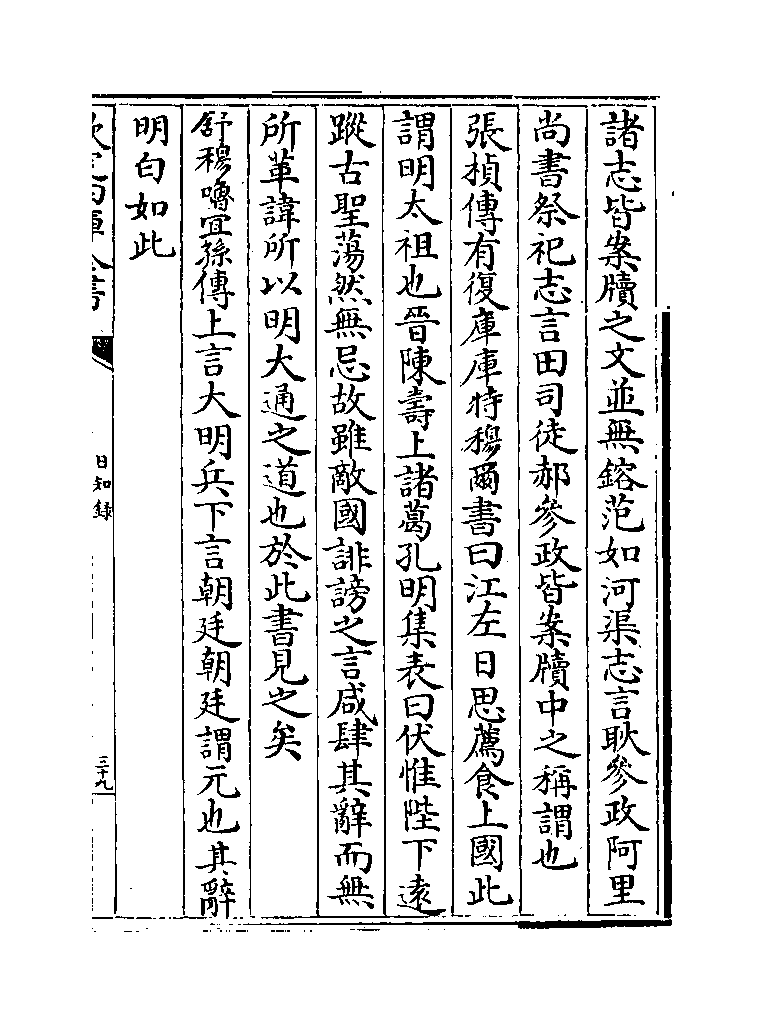 諸志皆案牘之文並無鎔范如河渠志言耿參政阿里
尚書祭祀志言田司徒郝參政皆案牘中之稱謂也
張楨傳有復庫庫特穆爾書曰江左日思薦食上國此
謂明太祖也晉陳壽上諸葛孔明集表曰伏惟陛下遠
蹤古聖蕩然無忌故雖敵國誹謗之言咸肆其辭而無
所革諱所以明大通之道也於此書見之矣
舒穆嚕宜孫傳上言大明兵下言朝廷朝廷謂元也其辭
明白如此
日知録
三十九